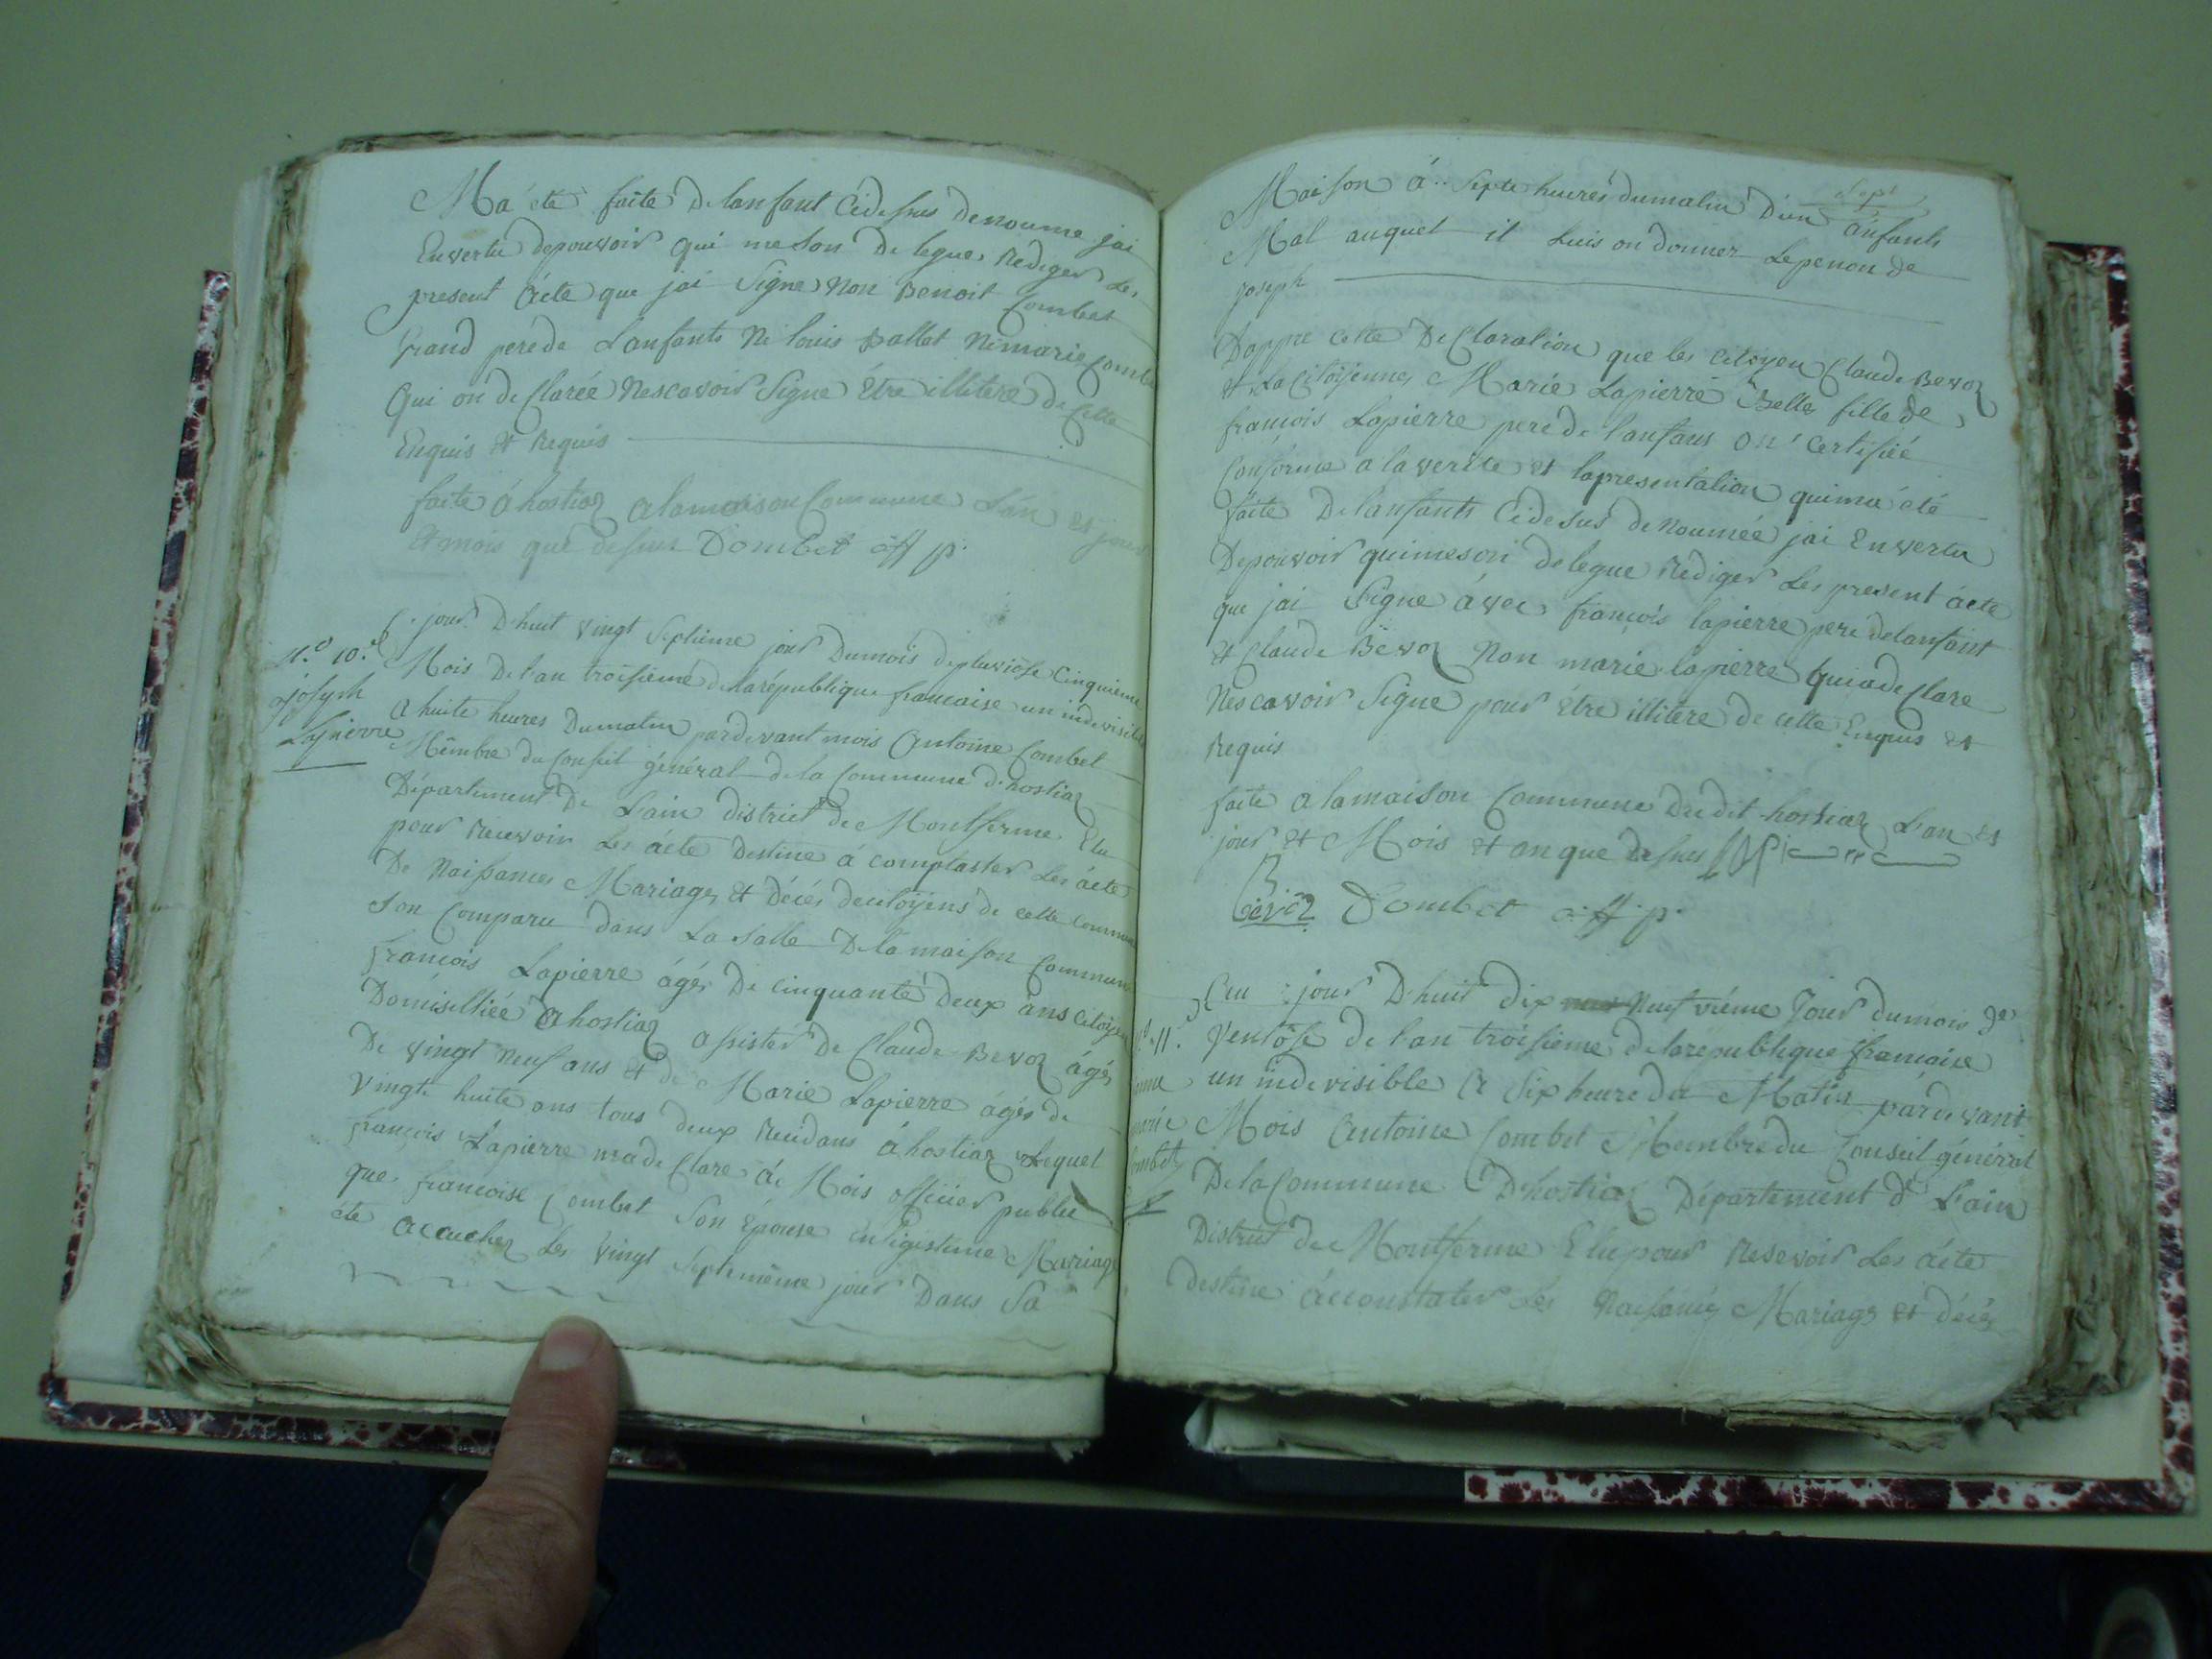 Ma été faite Delanfant Cidesus denoume jai
Envertu depouvoir qui meson Delegue, Rediger Les
present Acte que jai Signe Non Benoit Combet
Grand pere de Lanfants Ni louis Ballet Ni marie Combe
Qui on de Clarée Nescavoir Signe Être illitere de Cette
Enquis et Requis
faite á hostiaz alamaison Commune L'an et jour
et mois que desus Combet off p.
N.o 10.e
joseph
Lapierre
C. jour D'huit vingt Septieme jour Dumois depluviôse Cinquieme
Mois De l'an troisieme delarépublique francaise un indevisible
a huite heures Dumatin pardevant mois Antoine Combet
Membre du Conseil général de la Commune d'hostiaz
Département De L'ain district de Montferme Elu
pour Recevoir Les ácte Destine á complaster Les ácte
De Naissances Mariages et décés decitoÿens de cette Commune
Son Comparu dans La Salle Delamaison Commune
francois Lapierre ágés De cinquante deux ans citoÿen
Domisilliée Ahostiaz assister De Claude Bevoz ágés
De vingt Neuf ans et de Marie Lapierre ágés de
vingt huite ans tous deux Residans áhostiaz Lequel
francois Lapierre made Clare á Mois officier public
que francoise Combet Son Epouse enligistime Mariage
éte acaucher Les vingt Septiemême jour Dans Sa
Maison á Septe heures dumatin D'un anfants
Sept
Mal auquel il Luis on donner Le penon de
joseph
Dappre Cette De Claration que les Citoyen Claude Bevoz
et La Citoÿenne Marie Lapierre Belle fille de
francois Lapierre pere de lanfans on' Certifiée
Conforme a la verite et lapresentation quima été
faite Delanfants Cidesus de Noumée jai Envertu
Depouvoir quimeson delegue Rediger Les present ácte
que jai Signe ávec francois lapierre pere delanfant
et Claude Bevoz Non marie lapierre Quiadeclare
Nescavoir Signe pour Être illitere de cette Enquis et
Requis
faite a lamaison Commune Dudit hostiaz L'an et
jour et Mois et an que desus
Bevoz Combet off p.
11.
marie
Combet
Cm jour D'huit dix Neuf vième Jour dumois de
Ventôse de l'an troisieme delarepublique francaise
un indevisible A Six heure du Matin pardevant
Mois Antoine Combet Membre du Conseil général
De la Commune D'hostiaz Département d L'ain
District de Montferme Elu pour Resevoir Les ácte
destine áconstater Les Naisance Mariage et décés